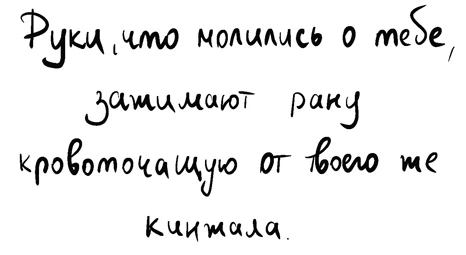 Руки, что молились о тебе,
зажимают рану
кровоточащую от твоего же
кинжала.